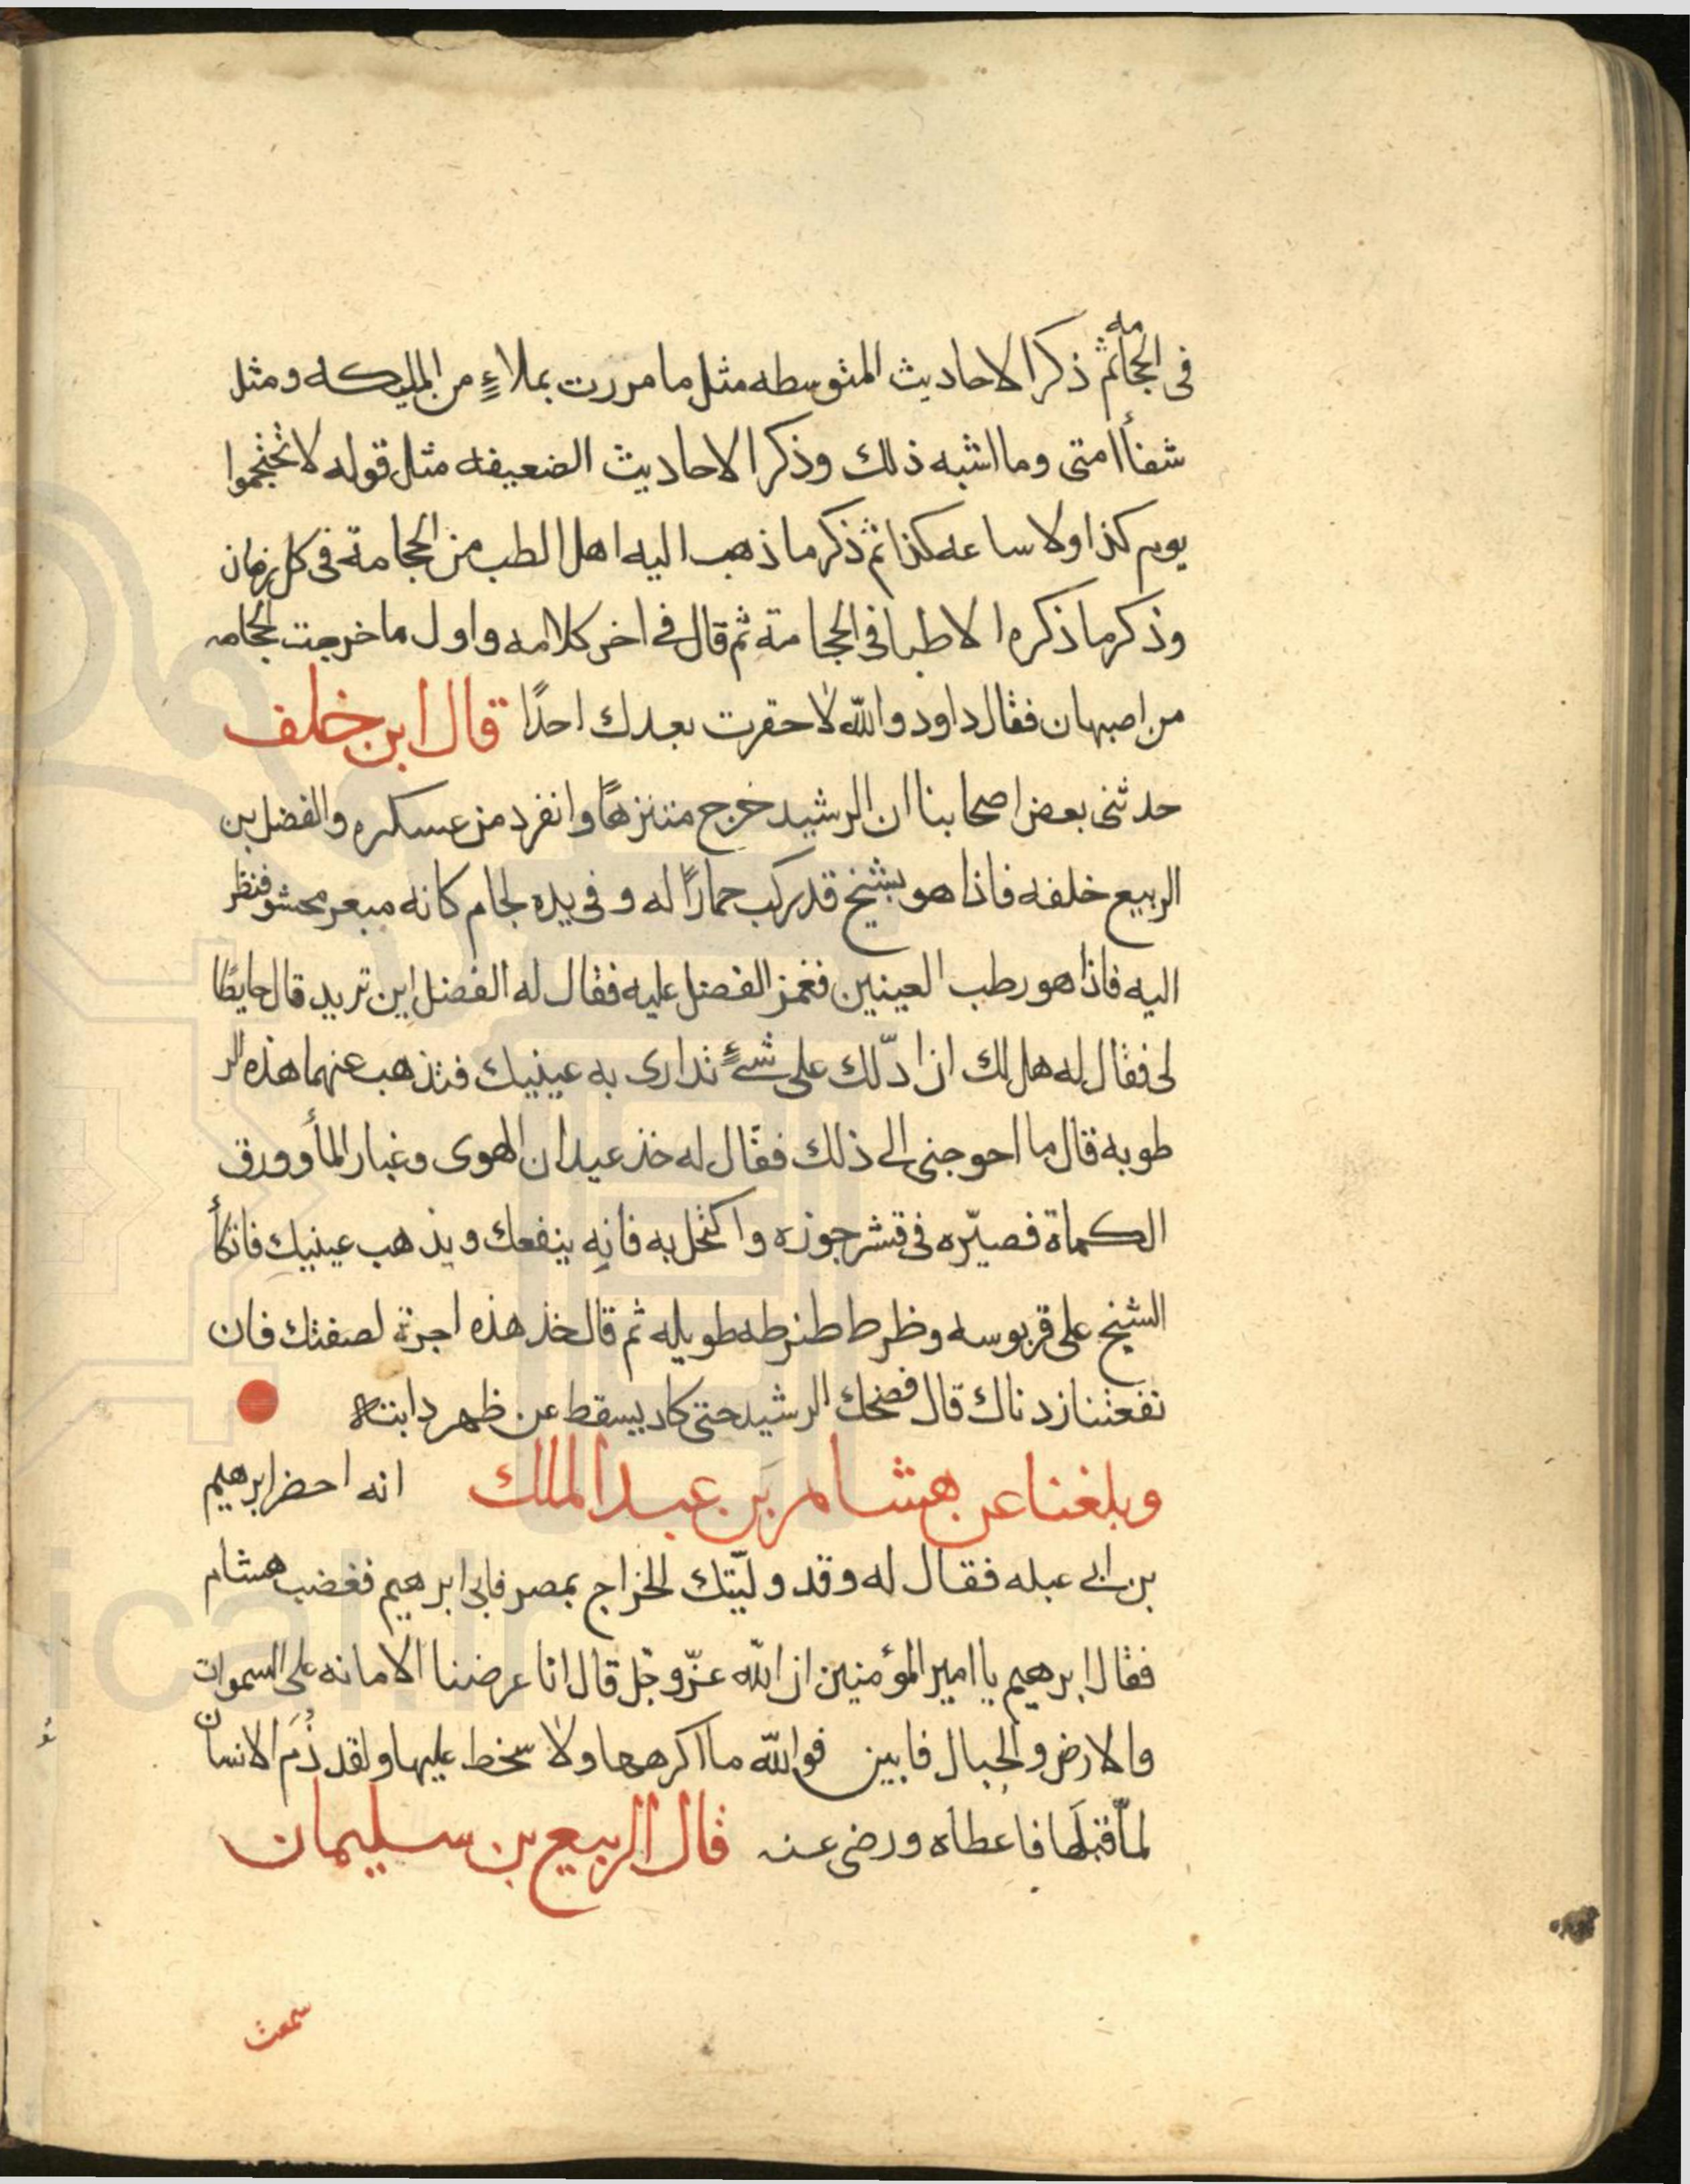 فى الحجامه ثم ذكر الاحاديث المتوسطه مثل ما مررت بملاءٍ من المليكه ومثل
شفأ امتى وما اشبه ذلك وذكر الاحاديث الضعيفه مثل قوله لا تحتجموا
يوم كذا ولا ساعه كذا ثم ذكر ما ذهب اليه اهل الطب من الحجامة فى كل زمان
وذكر ما ذكره الاطبا فى الحجامة ثم قال فى اخر كلامه واول ما خرجت الحجامه
من اصبهان فقال داود والله لا حقرت بعدك احدًا قال ابن خلف
حدثنى بعض اصحابنا ان الرشيد خرج متنزهًا وانفرد من عسكره والفضل بن
الربيع خلفه فاذا هو بشيخ قد ركب حمارًا له وفى يده لجام كانه مبعر محشو فنظر
اليه فاذا هو رطب العينين فغمز الفضل عليه فقال له الفضل اين تريد قال حايطًا
لى فقال له هل لك ان ادّلك على شئٍ تداوى به عينيك فتذهب عنهما هذه الر
طوبه قال ما احوجنى الى ذلك فقال له خذ عيدان الهوى وغبار المأ وورق
الكماة فصيّره فى قشر جوزه واكتحل به فانه ينفعك ويذهب عينيك فاتكأ
الشيخ على قربوسه وظرط ظرطه طويله ثم قال خذ هذه اجرة لصفتك فان
نفعتنا زدناك قال فضحك الرشيد حتى كاد يسقط عن ظهر دابته
وبلغنا عن هشام بن عبد الملك انه احضر ابرهيم
بن ابى عبله فقال له وقد وليّتك الخراج بمصر فابى ابرهيم فغضب هشام
فقال ابرهيم يا امير المؤمنين ان الله عزّ وجّل قال انا عرضنا الامانه على السموات
والارض والجبال فابين فوالله ما اكرهها ولا سخط عليها ولقد ذُمَ الانسان
لمّا قبلَها فاعطاه ورضى عنه قال الربيع بن سليمان
سمعت